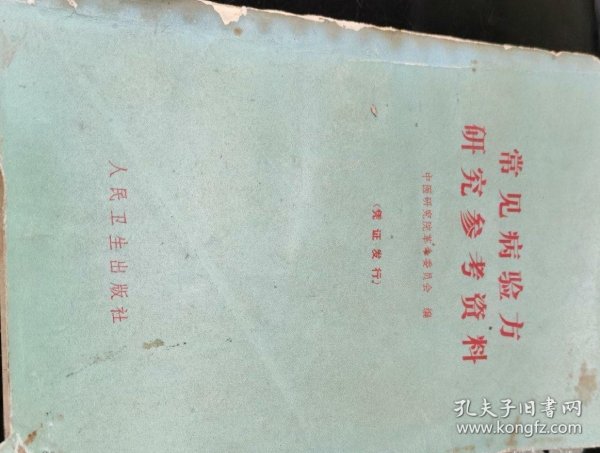 常见病验方
研究参考资料
中医研究院革命委员会 编
(凭证发行)
人民卫生出版社
孔夫子旧书网
www.kongfz.com